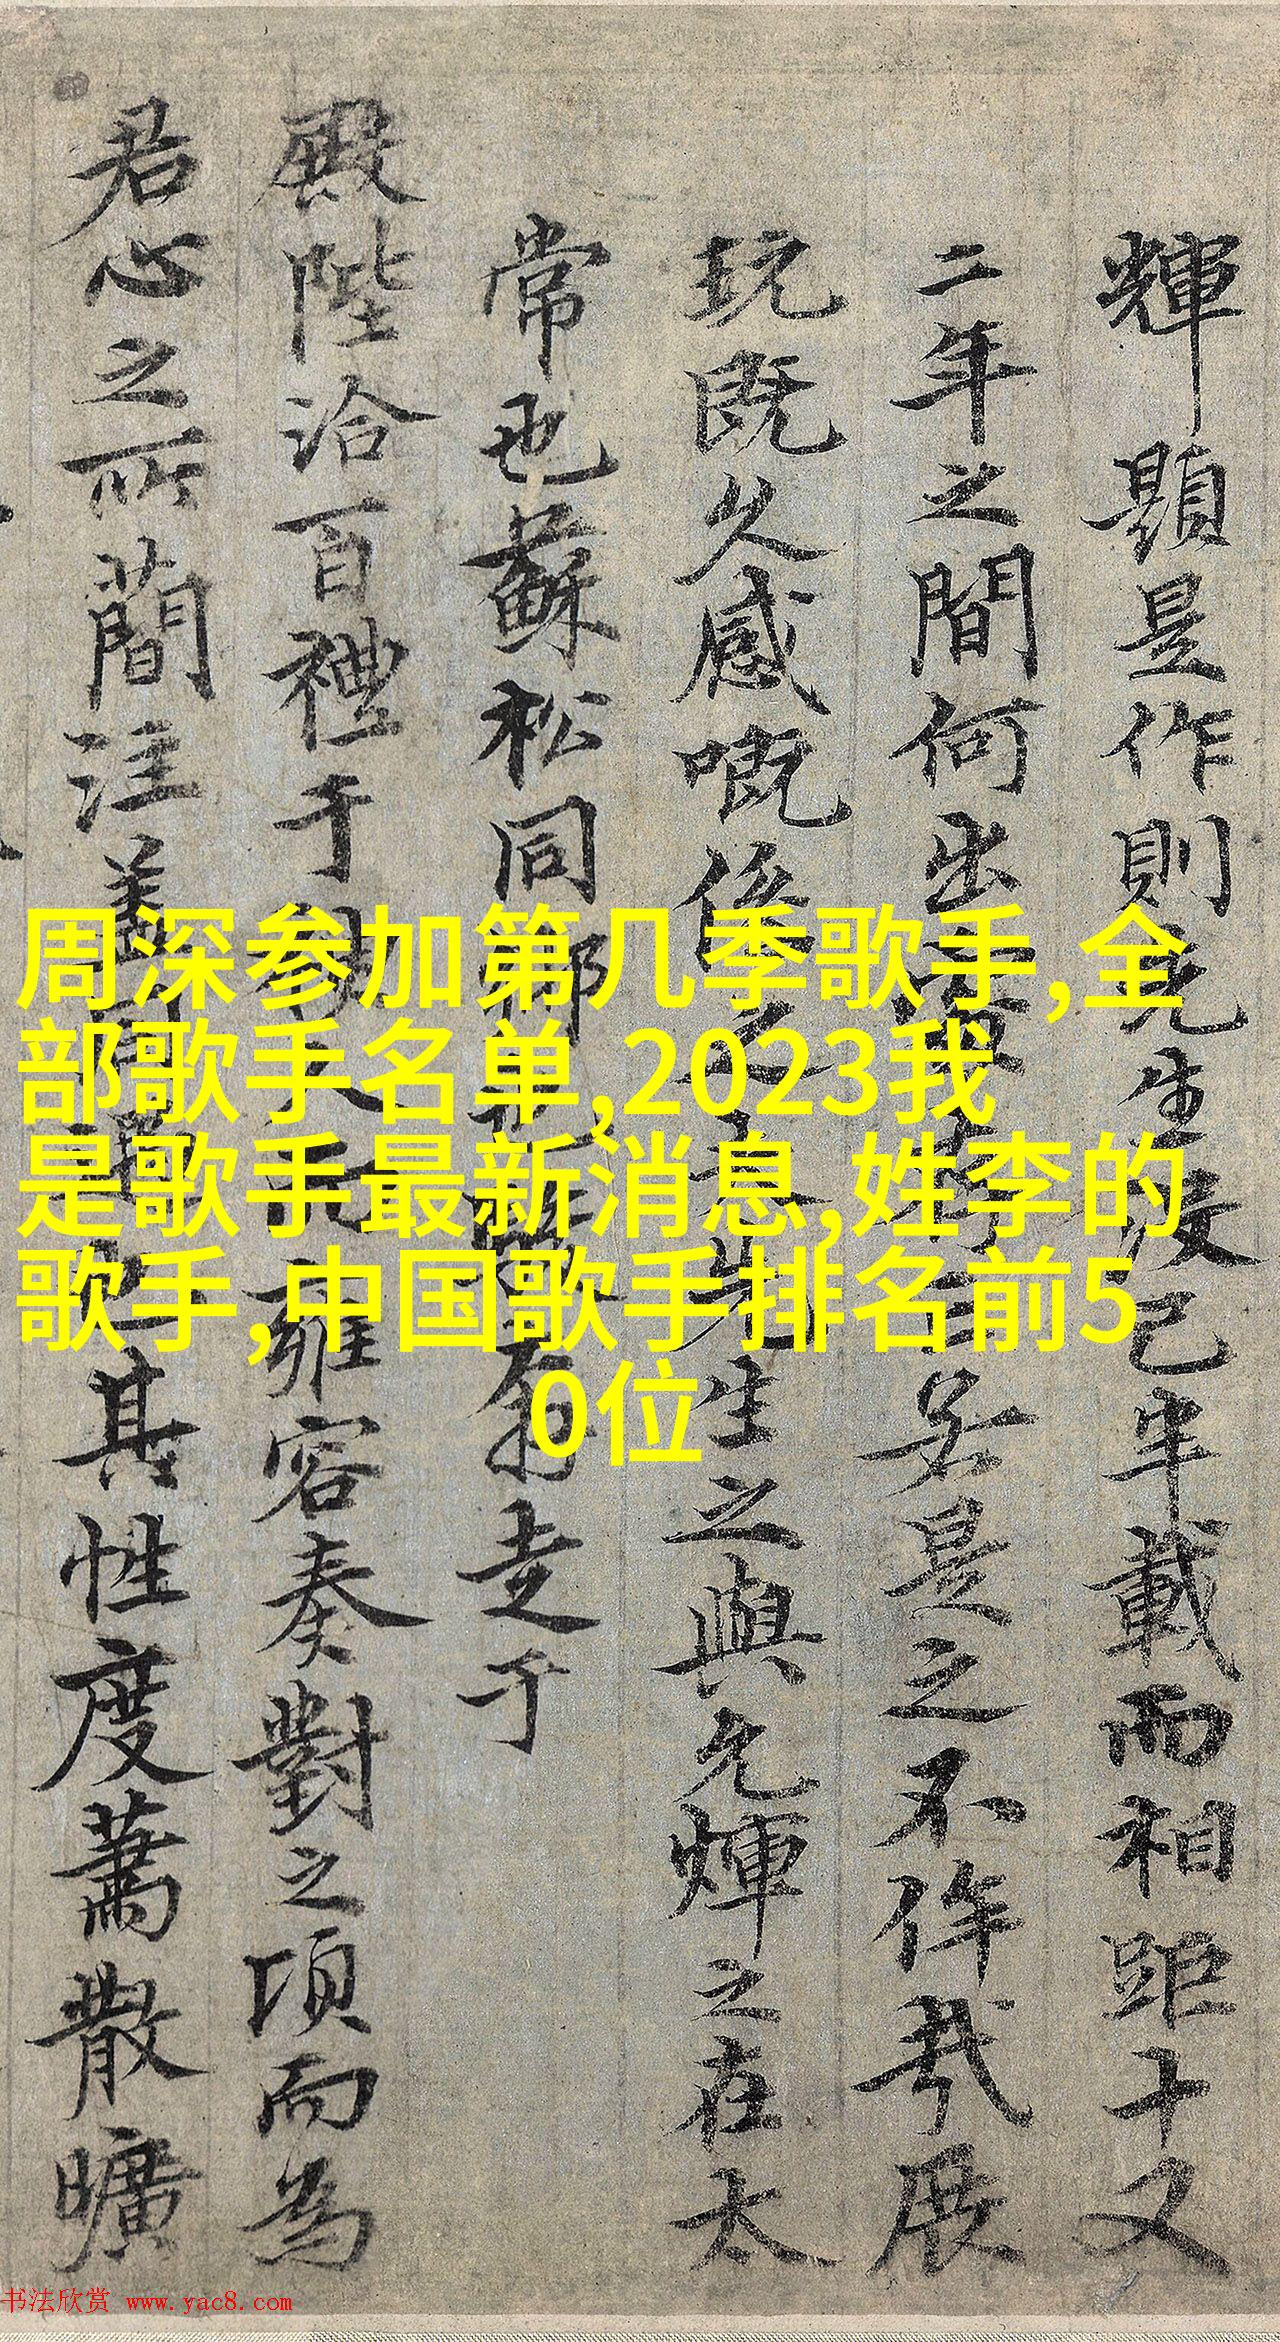 輝顯是作則先生後已半載而相距十又
二年之間何出處 若是之不侔哉展
玩既久感嘅係之 先生之與允煇之在太
常也蘇松同郡 走于
殿陛洽百禮于 雍容奏對之頃而為
君心之所簡注蓋 其性度蕭散曠
周深参加第几季歌手,全
部歌手名单,2023我
是歌手最新消息,姓李的
歌手,中国歌手排名前5
0位
书法欣赏 www.yac8.com